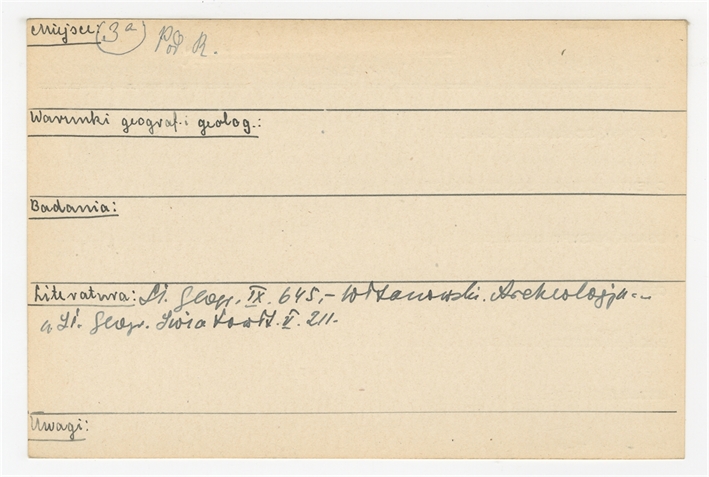 Miejsce: 3a Pod R.
Warunki geograf. i geolog.:
Badania:
Literatura: Sł. Geogr. IX. 645,- Witanowski. Archeologja...
w Sł. Geogr. Światowit. V. 211.
Uwagi: